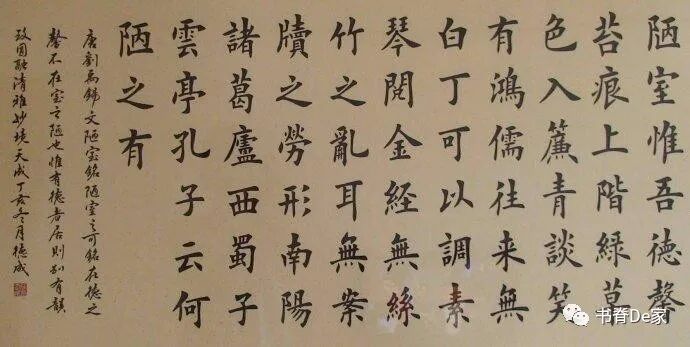 陋室惟吾德馨
苔痕上階綠草
色入簾青談笑
有鴻儒往来無
白丁可以調素
琴閱金經無絲
竹之亂耳無案
牘之勞形南陽
諸葛廬西蜀子
雲亭孔子云何
陋之有
唐劉禹錫文陋室銘陋室之可銘在德之
馨不在室之陋也惟有德者居則別有韻
致圓融清雅妙境天成丁亥冬月德成
书脊De家